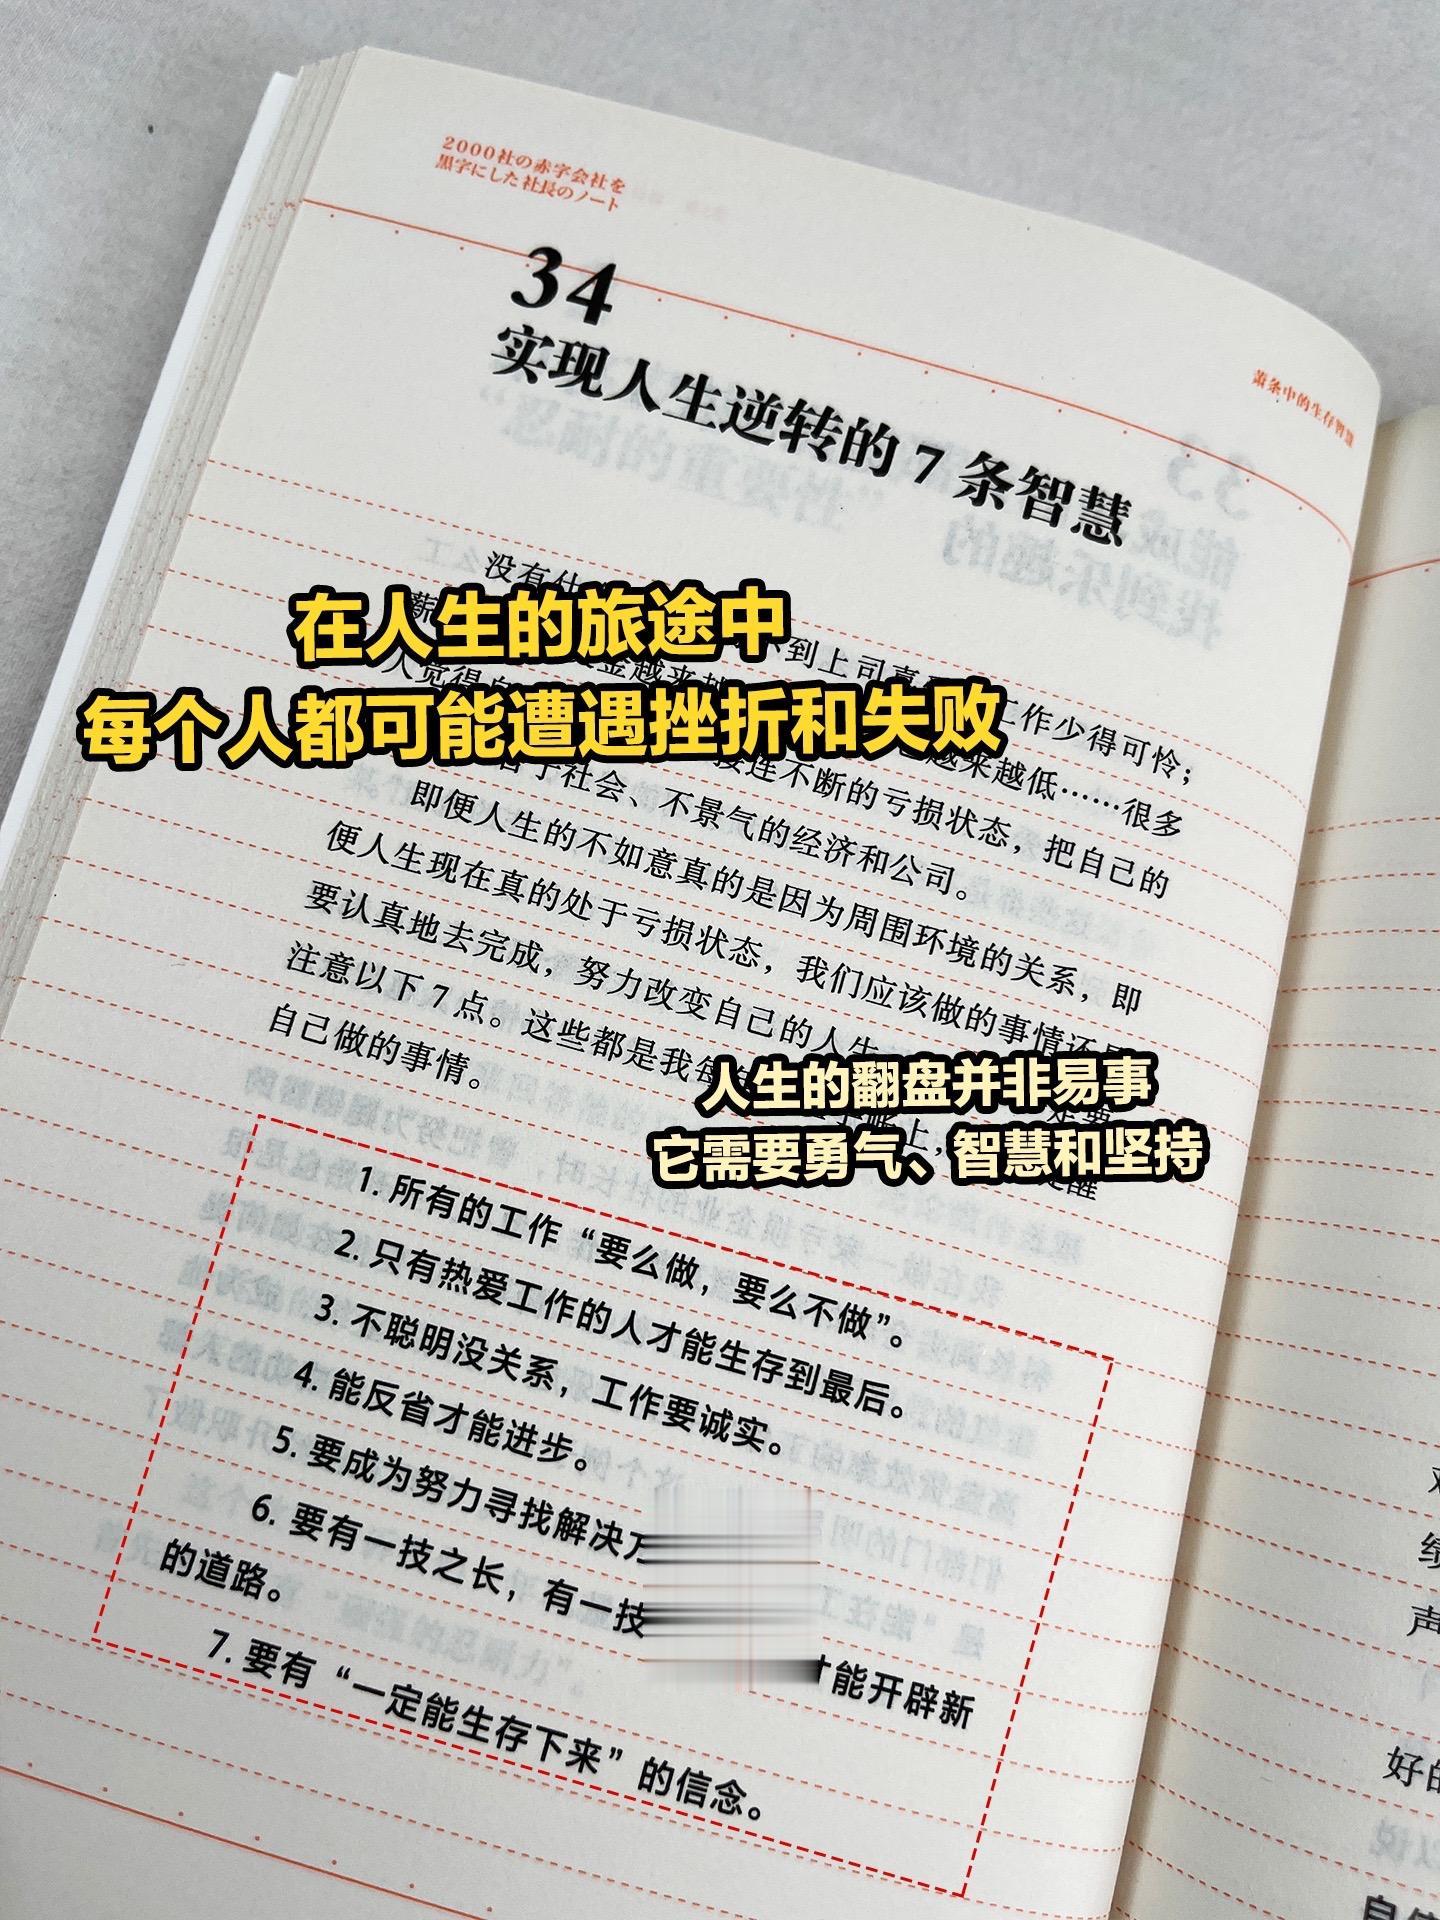 2000社の赤字会社を
黒字にした社長のノート
萧条中的生存智慧
34
实现人生逆转的 7 条智慧
没有什
薪 到上司 工作少得可怜；
金越来越 越来越低……很多
人觉得自 接连不断的亏损状态，把自己的
于社会、不景气的经济和公司。
在人生的旅途中
每个人都可能遭遇挫折和失败
即便人生的不如意真的是因为周围环境的关系，即
便人生现在真的处于亏损状态，我们应该做的事情还是
要认真地去完成，努力改变自己的人生
注意以下 7 点。这些都是我每 上， 提醒
自己做的事情。
人生的翻盘并非易事
它需要勇气、智慧和坚持
1. 所有的工作“要么做，要么不做”。
2. 只有热爱工作的人才能生存到最后。
3. 不聪明没关系，工作要诚实。
4. 能反省才能进步。
5. 要成为努力寻找解决
6. 要有一技之长，有一技 才能开辟新
的道路。
7. 要有“一定能生存下来”的信念。
声
好的
以说